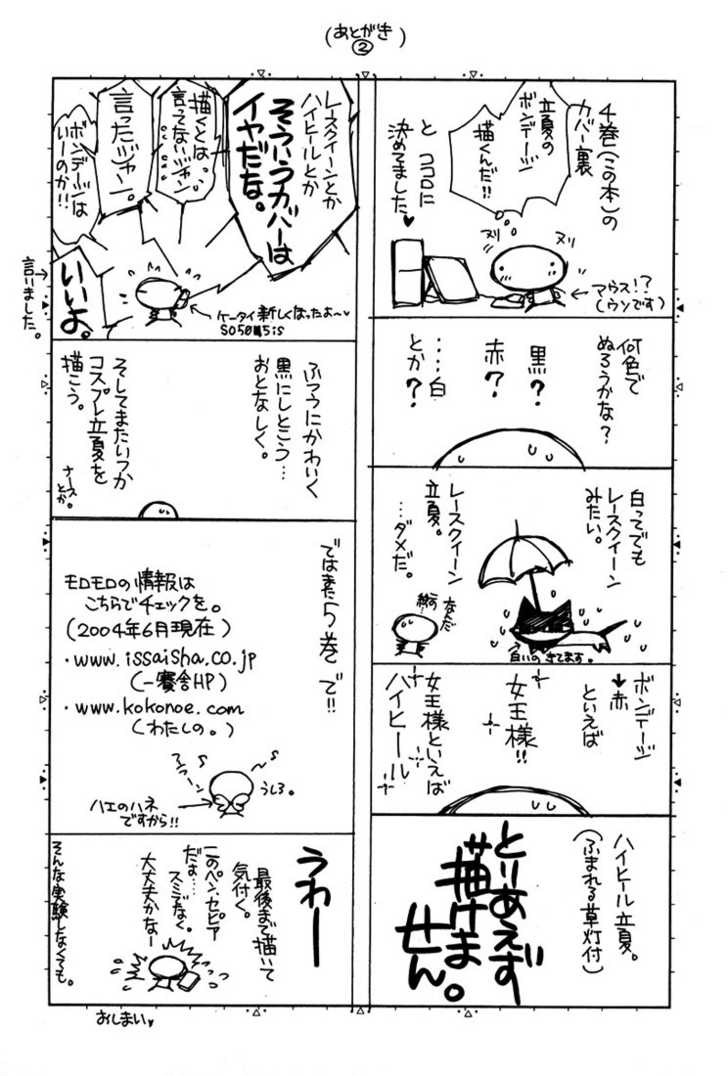 (あとがき②)
4巻(この本)の
カバー裏
立夏の
ボンデージ
描くんだ!!
と ココロに
決めてました♥
ヌリ
ヌリ
マウス!?
(ウソです)
何色で
ぬろうかな?
黒?
赤?
‥‥白
とか?
白ってでも
レースクィーン
みたい。
レースクィーン
立夏。
…ダメだ。
なんだ
絵の
白いの きてます。
ボンデージ
→赤
といえば
女王様!!
女王様といえば
ハイヒール
ハイヒール立夏。
(ふまれる草灯付)
とりあえず
描けま
せん。
レースクィーンとか
ハイヒールとか
そういうカバーは
イヤだな。
描くとは
言ってないジャン
言ったジャン。
ボンデージは
いーのか!!
いいよ。
→言いました。
ケータイ新しくなったよ〜♥
SO505is
ふつうにかわいく
黒にしとこう…
おとなしく。
そしてまたいつか
コスプレ立夏を
描こう。
ナース
とか。
ではまた5巻で!!
モロモロの情報は
こちらでチェックを。
(2004年6月現在)
・www.issaisha.co.jp
(一賽舎HP)
・www.kokonoe.com
(わたしの。)
うしろ。
ハエのハネ
ですから!!
うわー
最後まで描いて
気付く。
このペン、セピア
だぁ‥‥
スミでなく。
大丈夫かなー
そんな実験しなくても。
おしまい♥